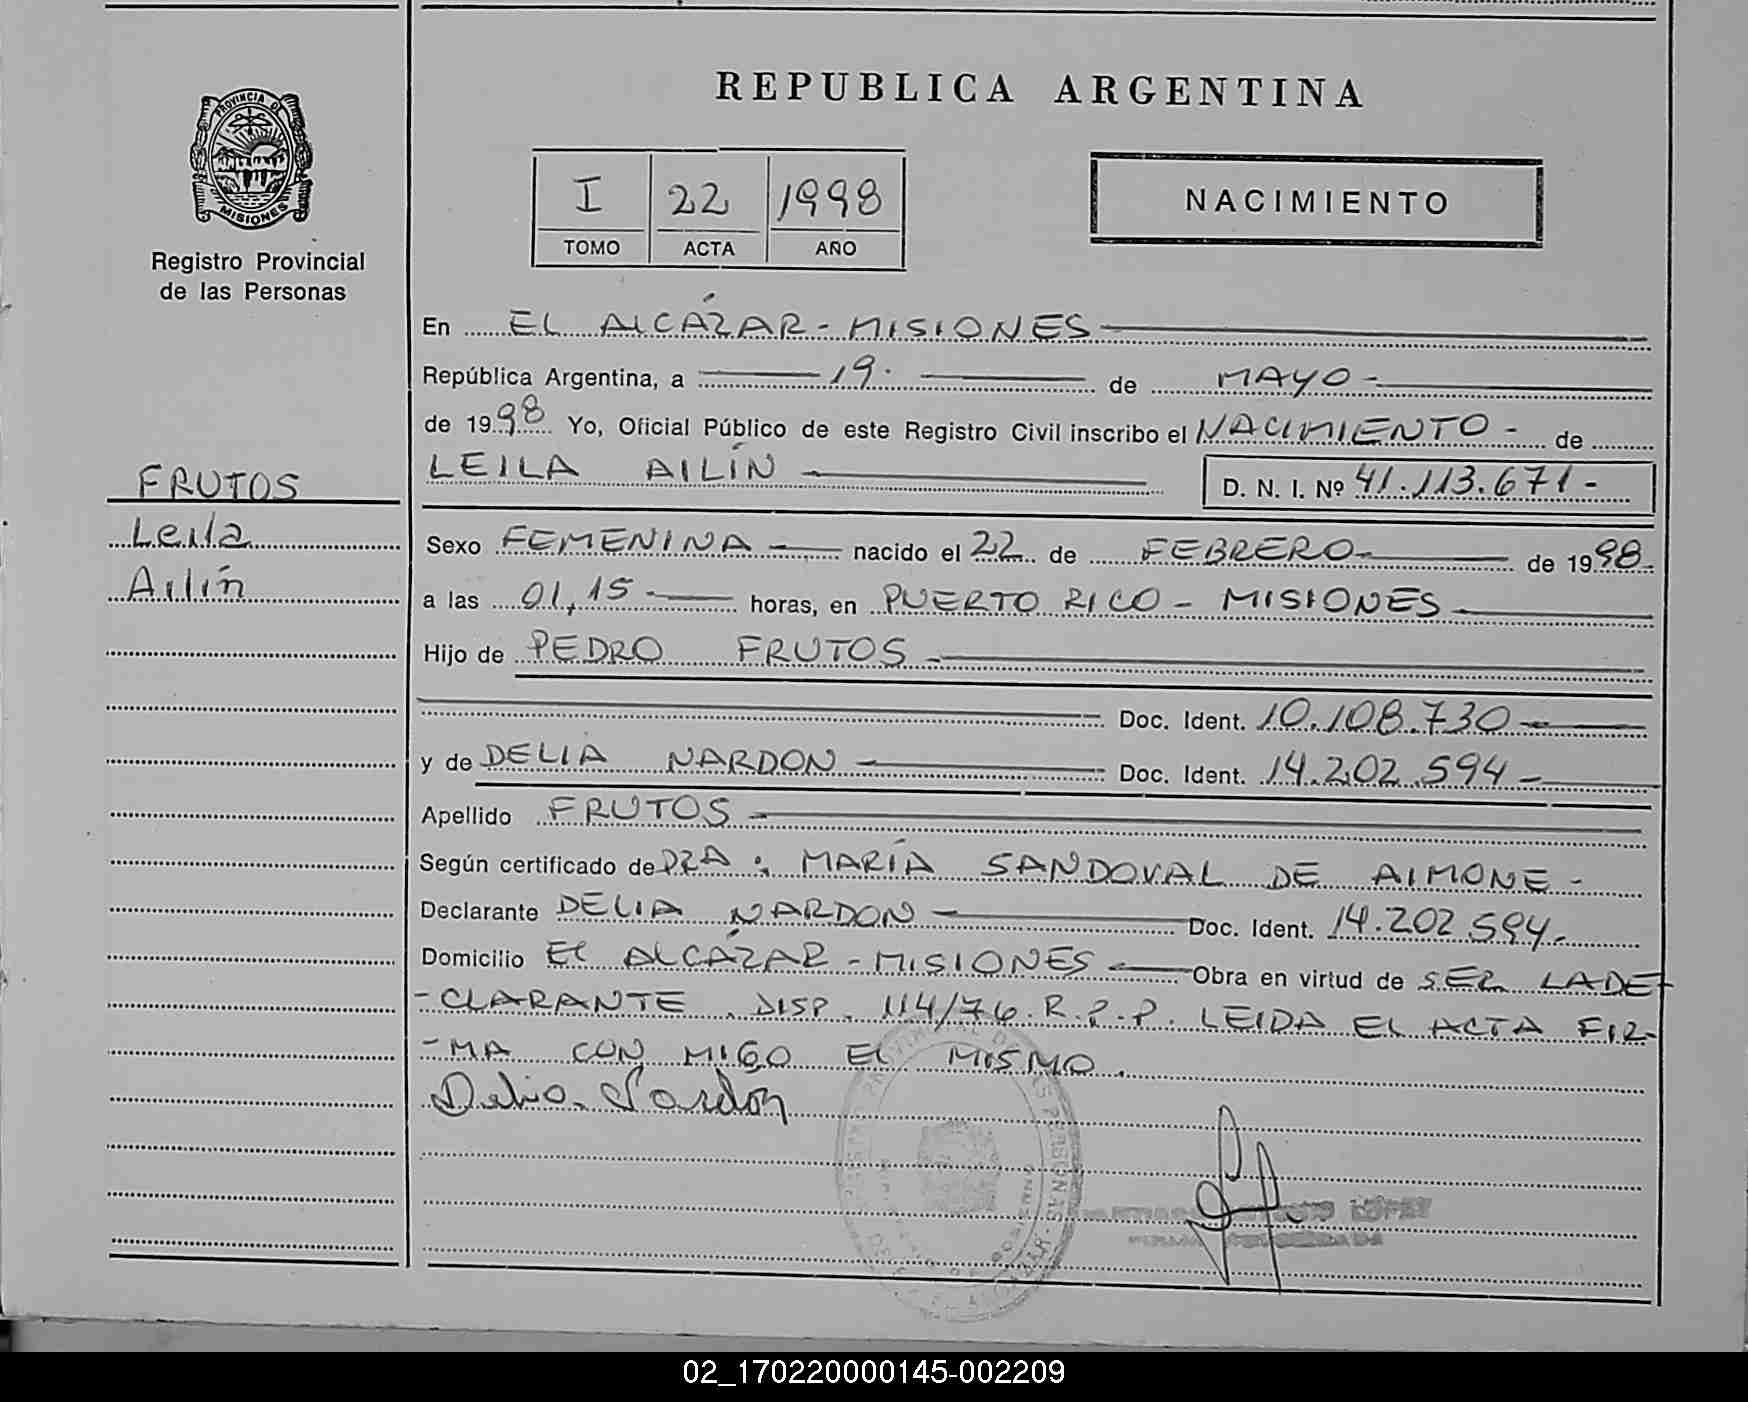 REPUBLICA ARGENTINA
PROVINCIA DE
MISIONES
Registro Provincial
de las Personas
I 22 1998
TOMO ACTA AÑO
NACIMIENTO
En EL ALCÁZAR - MISIONES
República Argentina, a 19. de MAYO -
de 1998 Yo, Oficial Público de este Registro Civil inscribo el NACIMIENTO - de
LEILA AILÍN D. N. I. Nº 41.113.671 -
FRUTOS
Leila
Ailín
Sexo FEMENINA - nacido el 22 de FEBRERO - de 1998.
a las 01,15 - horas, en PUERTO RICO - MISIONES
Hijo de PEDRO FRUTOS
Doc. Ident. 10.108.730 -
y de DELIA NARDON Doc. Ident. 14.202.594 -
Apellido FRUTOS
Según certificado de DRA: MARÍA SANDOVAL DE AIMONE -
Declarante DELIA NARDON - Doc. Ident. 14.202.594 -
Domicilio EL ALCÁZAR - MISIONES - Obra en virtud de SER LA DE-
- CLARANTE. DISP. 114/76. R.P.P. LEIDA EL ACTA FIR-
- MA CON MIGO EL MISMO.
Delia Nardón
LOPEZ
02_170220000145-002209